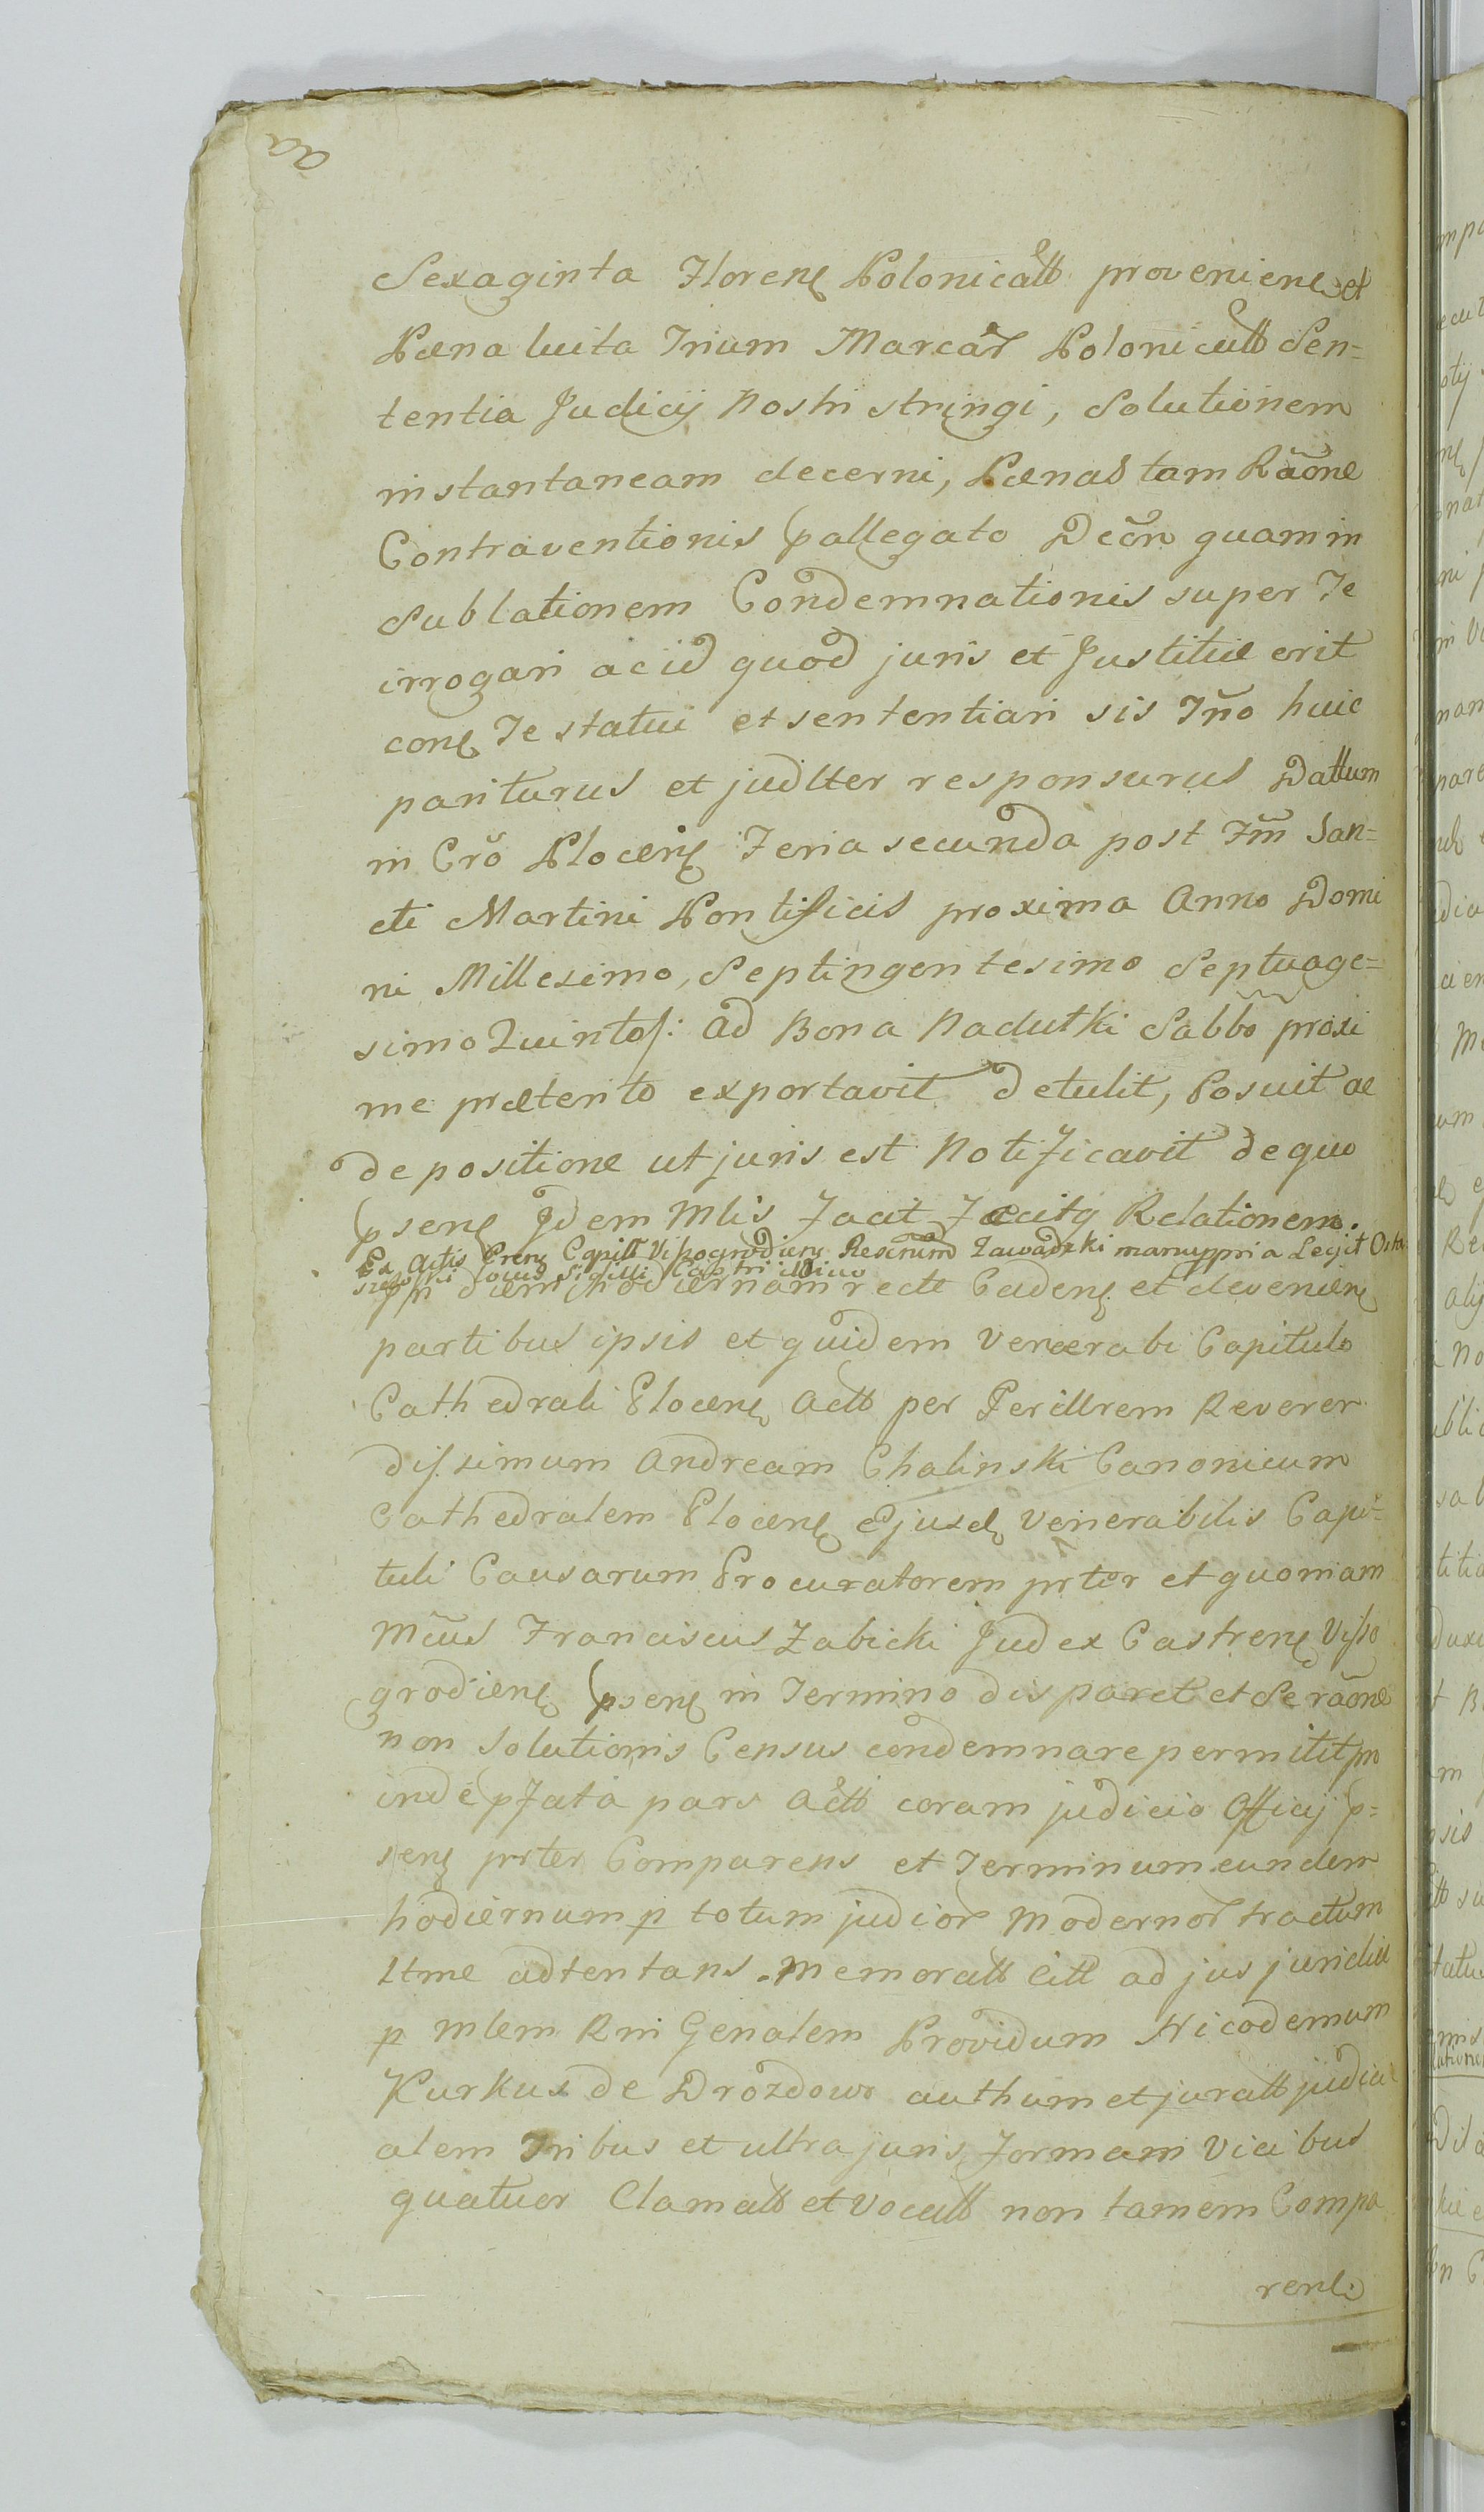 Sexaginta Floren Polonicall provenien et
Pœna luita Trium Marcar Polonicall Sen=
tentia Judicij Nostri stringi, Solutionem
instantaneam decerni, Pœnas tam Raõne
Contraventionis pallegato Decõn quam in
Sublationem Condemnationis super Te
irrogari ac id quod juris et Justitiæ erit
con Te statui et sententiari sis Tño huic
pariturus et judlter responsurus Dattum
in Crõ Plocen Feria secunda post Fm̃ San=
cti Martini Pontificis proxima Anno Domi
ni Millesimo, Septingentesimo Septuage=
simo Quinto/: ad Bona Nadutki Sabbo proxi
me præterito exportavit detulit, Posuit ac
de positione ut juris est Notificavit de quo
psens Idem Mlis Facit Fecitq Relationem.
Ex Actis Pren Capitt Vissogrodien Rescrum Zawadzki manuppria Legit Osta
szewski Locus Sigilli Castri
ppri diem hodiernam recte Caden et devenien
partibus ipsis et quidem Venærabi Capitulo
Cathedrali Plocen Actt per Perillrem Reveren
dissimum Andream Chalinski Canonicum
Cathedralem Plocen Ejusd Venerabilis Capi=
tuli Causarum Procuratorem prter et quoniam
Mcũs Franciscus Zabicki Judex Castren Visso
grodien psens in Termino disparet et Se raõne
non Solutionis Census condemnare permitit pro
inde pfata pars Actt coram judicio Officij p=
sens prter Comparens et Terminum eundem
hodiernum p totum judior modernor tractum
ltme adtentans. Memoratt Citt ad jus juridice
p Mlem Rni Genalem Providum Nicodemum
Kurkus de Drozdowo authum et juratt judici
alem Tribus et ultra juris formam Vicibus
quatuor Clamatt et Vocatt non tamen Compa
renti